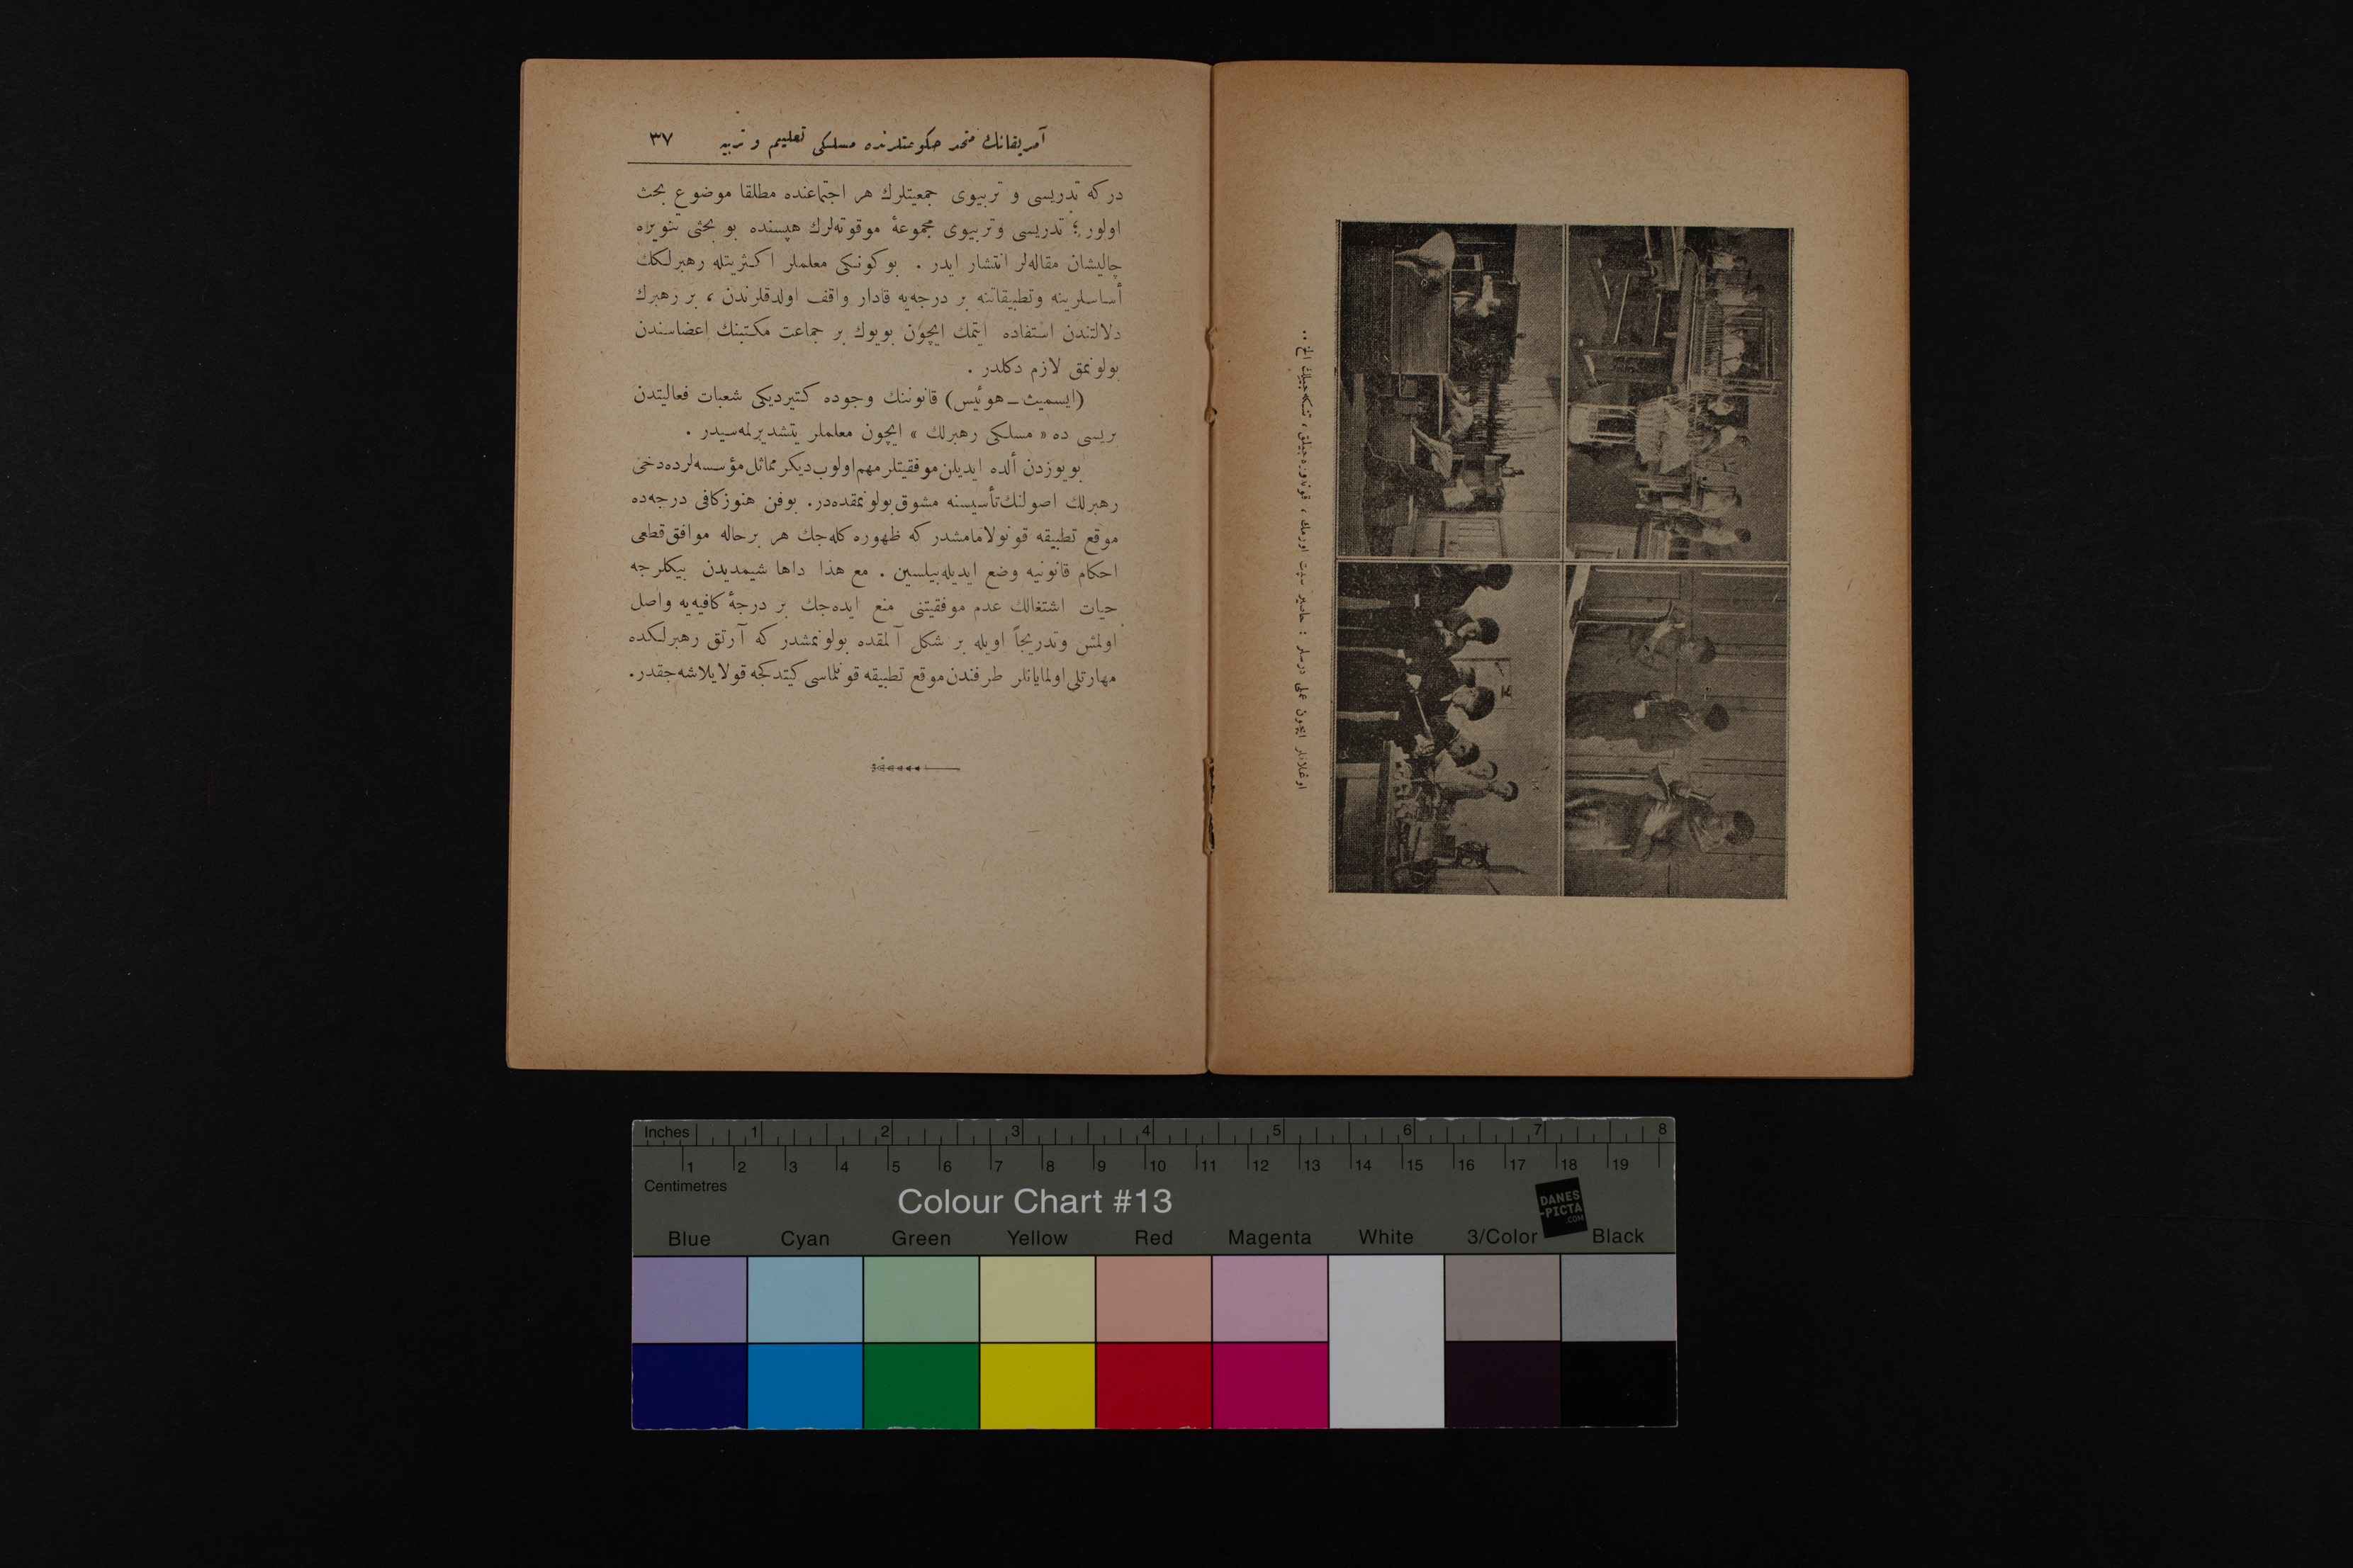 آمریقانك متحد حكومتلرنده مسلكی تعلیم و تربیه ٣٧
در كه تدریسی و تربیوی جمعیتلرك هر اجتماعنده مطلقا موضوع بحث
اولور؛ تدریسی وتربیوی مجموعهٔ موقوته‌لرك هپسنده بو بحثی تنویره
چالیشان مقاله‌لر انتشار ایدر . بوكونكی معلملر اكثریتله رهبرلكك
أساسلرینه وتطبیقاتنه بر درجه‌یه قادار واقف اولدقلرندن ، بر رهبرك
دلالتندن استفاده ایتمك ایچون بویوك بر جماعت مكتبنك اعضاسندن
بولونمق لازم دكلدر .
(ایسمیث ـ هوئیس) قانوننك وجوده كتیردیكی شعبات فعالیتدن
بریسی ده « مسلكی رهبرلك » ایچون معلملر یتشدیرلمه‌سیدر .
بویوزدن ألده ایدیلن موفقیتلر مهم اولوب دیكر مماثل مؤسسه‌لرده‌دخی
رهبرلك اصولنك تأسیسنه مشوق بولونمقده‌در. بوفن هنوزكافی درجه‌ده
موقع تطبیقه قونولامامشدر كه ظهوره كله‌جك هر برحاله موافق قطعی
احكام قانونیه وضع ایدیله‌بیلسین . مع هذا داها شیمدیدن بیكلرجه
حیات اشتغالك عدم موفقیتنی منع ایده‌جك بر درجهٔ كافیه‌یه واصل
اولمش وتدریجاً اویله بر شكل آلمقده بولونمشدر كه آرتق رهبرلكده
مهارتلی اولمایانلر طرفندن موقع تطبیقه قونلماسی كیتدكجه قولایلاشه‌جقدر.
اوغلانلر ایچون عملی درسلر : حاصیر سپت اورمك ، قوندوره‌جیلق ، تنكه‌جیلك الخ ..
Inches 1 2 3 4 5 6 7 8
1 2 3 4 5 6 7 8 9 10 11 12 13 14 15 16 17 18 19
Centimetres
Colour Chart #13
DANES
-PICTA
.COM
Blue Cyan Green Yellow Red Magenta White 3/Color Black